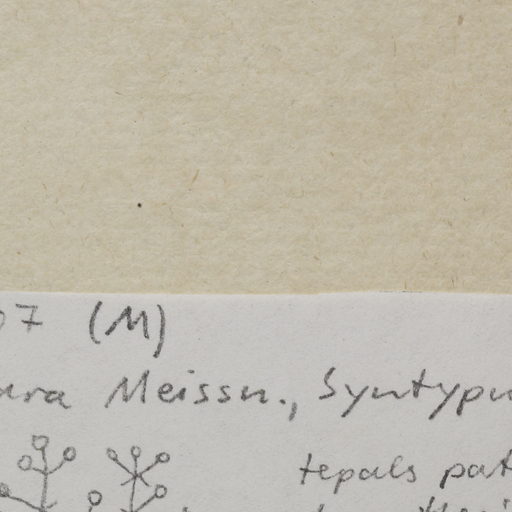 07 (M)
ura Meissn., Syntypu
tepals pat